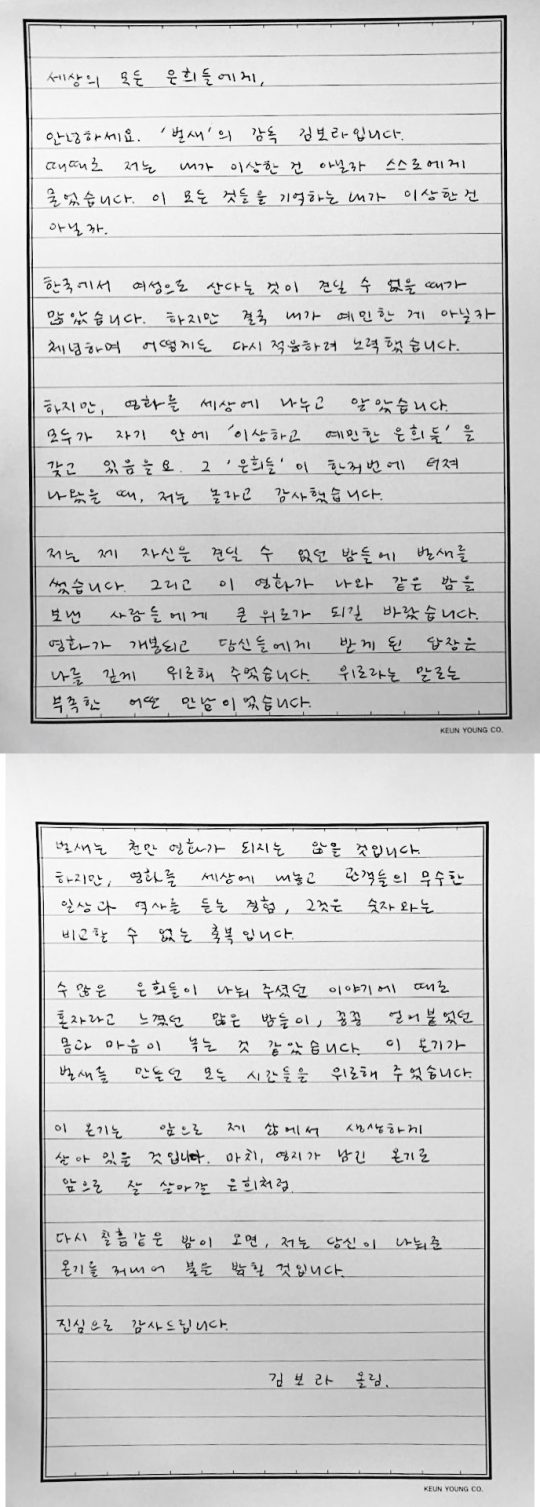 세상의 모든 은희들에게,
안녕하세요. '벌새'의 감독 김보라입니다.
때때로 저는 내가 이상한 건 아닐까 스스로에게
물었습니다. 이 모든 것들을 기억하는 내가 이상한 건
아닐까.
한국에서 여성으로 산다는 것이 견딜 수 없을 때가
많았습니다. 하지만 결국 내가 예민한 게 아닐까
체념하며 어떻게든 다시 적응하려 노력했습니다.
하지만, 영화를 세상에 나누고 알았습니다.
모두가 자기 안에 '이상하고 예민한 은희들'을
갖고 있음을요. 그 '은희들'이 한꺼번에 터져
나왔을 때, 저는 놀라고 감사했습니다.
저는 제 자신을 견딜 수 없던 밤들에 벌새를
썼습니다. 그리고 이 영화가 나와 같은 밤을
보낸 사람들에게 큰 위로가 되길 바랐습니다.
영화가 개봉되고 당신들에게 받게 된 답장은
나를 깊게 위로해 주었습니다. 위로라는 말로는
부족한 어떤 만남이었습니다.
KEUN YOUNG CO.
벌새는 천만 영화가 되지는 않을 것입니다.
하지만, 영화를 세상에 내놓고 관객들의 무수한
일상과 역사를 듣는 경험, 그것은 숫자와는
비교할 수 없는 축복입니다.
수많은 은희들이 나눠 주셨던 이야기에 때로
혼자라고 느꼈던 많은 밤들이, 꽁꽁 얼어붙었던
몸과 마음이 녹는 것 같았습니다. 이 온기가
벌새를 만들던 모든 시간들을 위로해 주었습니다.
이 온기는 앞으로 제 삶에서 생생하게
살아 있을 것입니다. 마치, 영지가 남긴 온기로
앞으로 잘 살아갈 은희처럼.
다시 칠흑같은 밤이 오면, 저는 당신이 나눠준
온기를 꺼내어 불을 밝힐 것입니다.
진심으로 감사드립니다.
김보라 올림.
KEUN YOUNG CO.